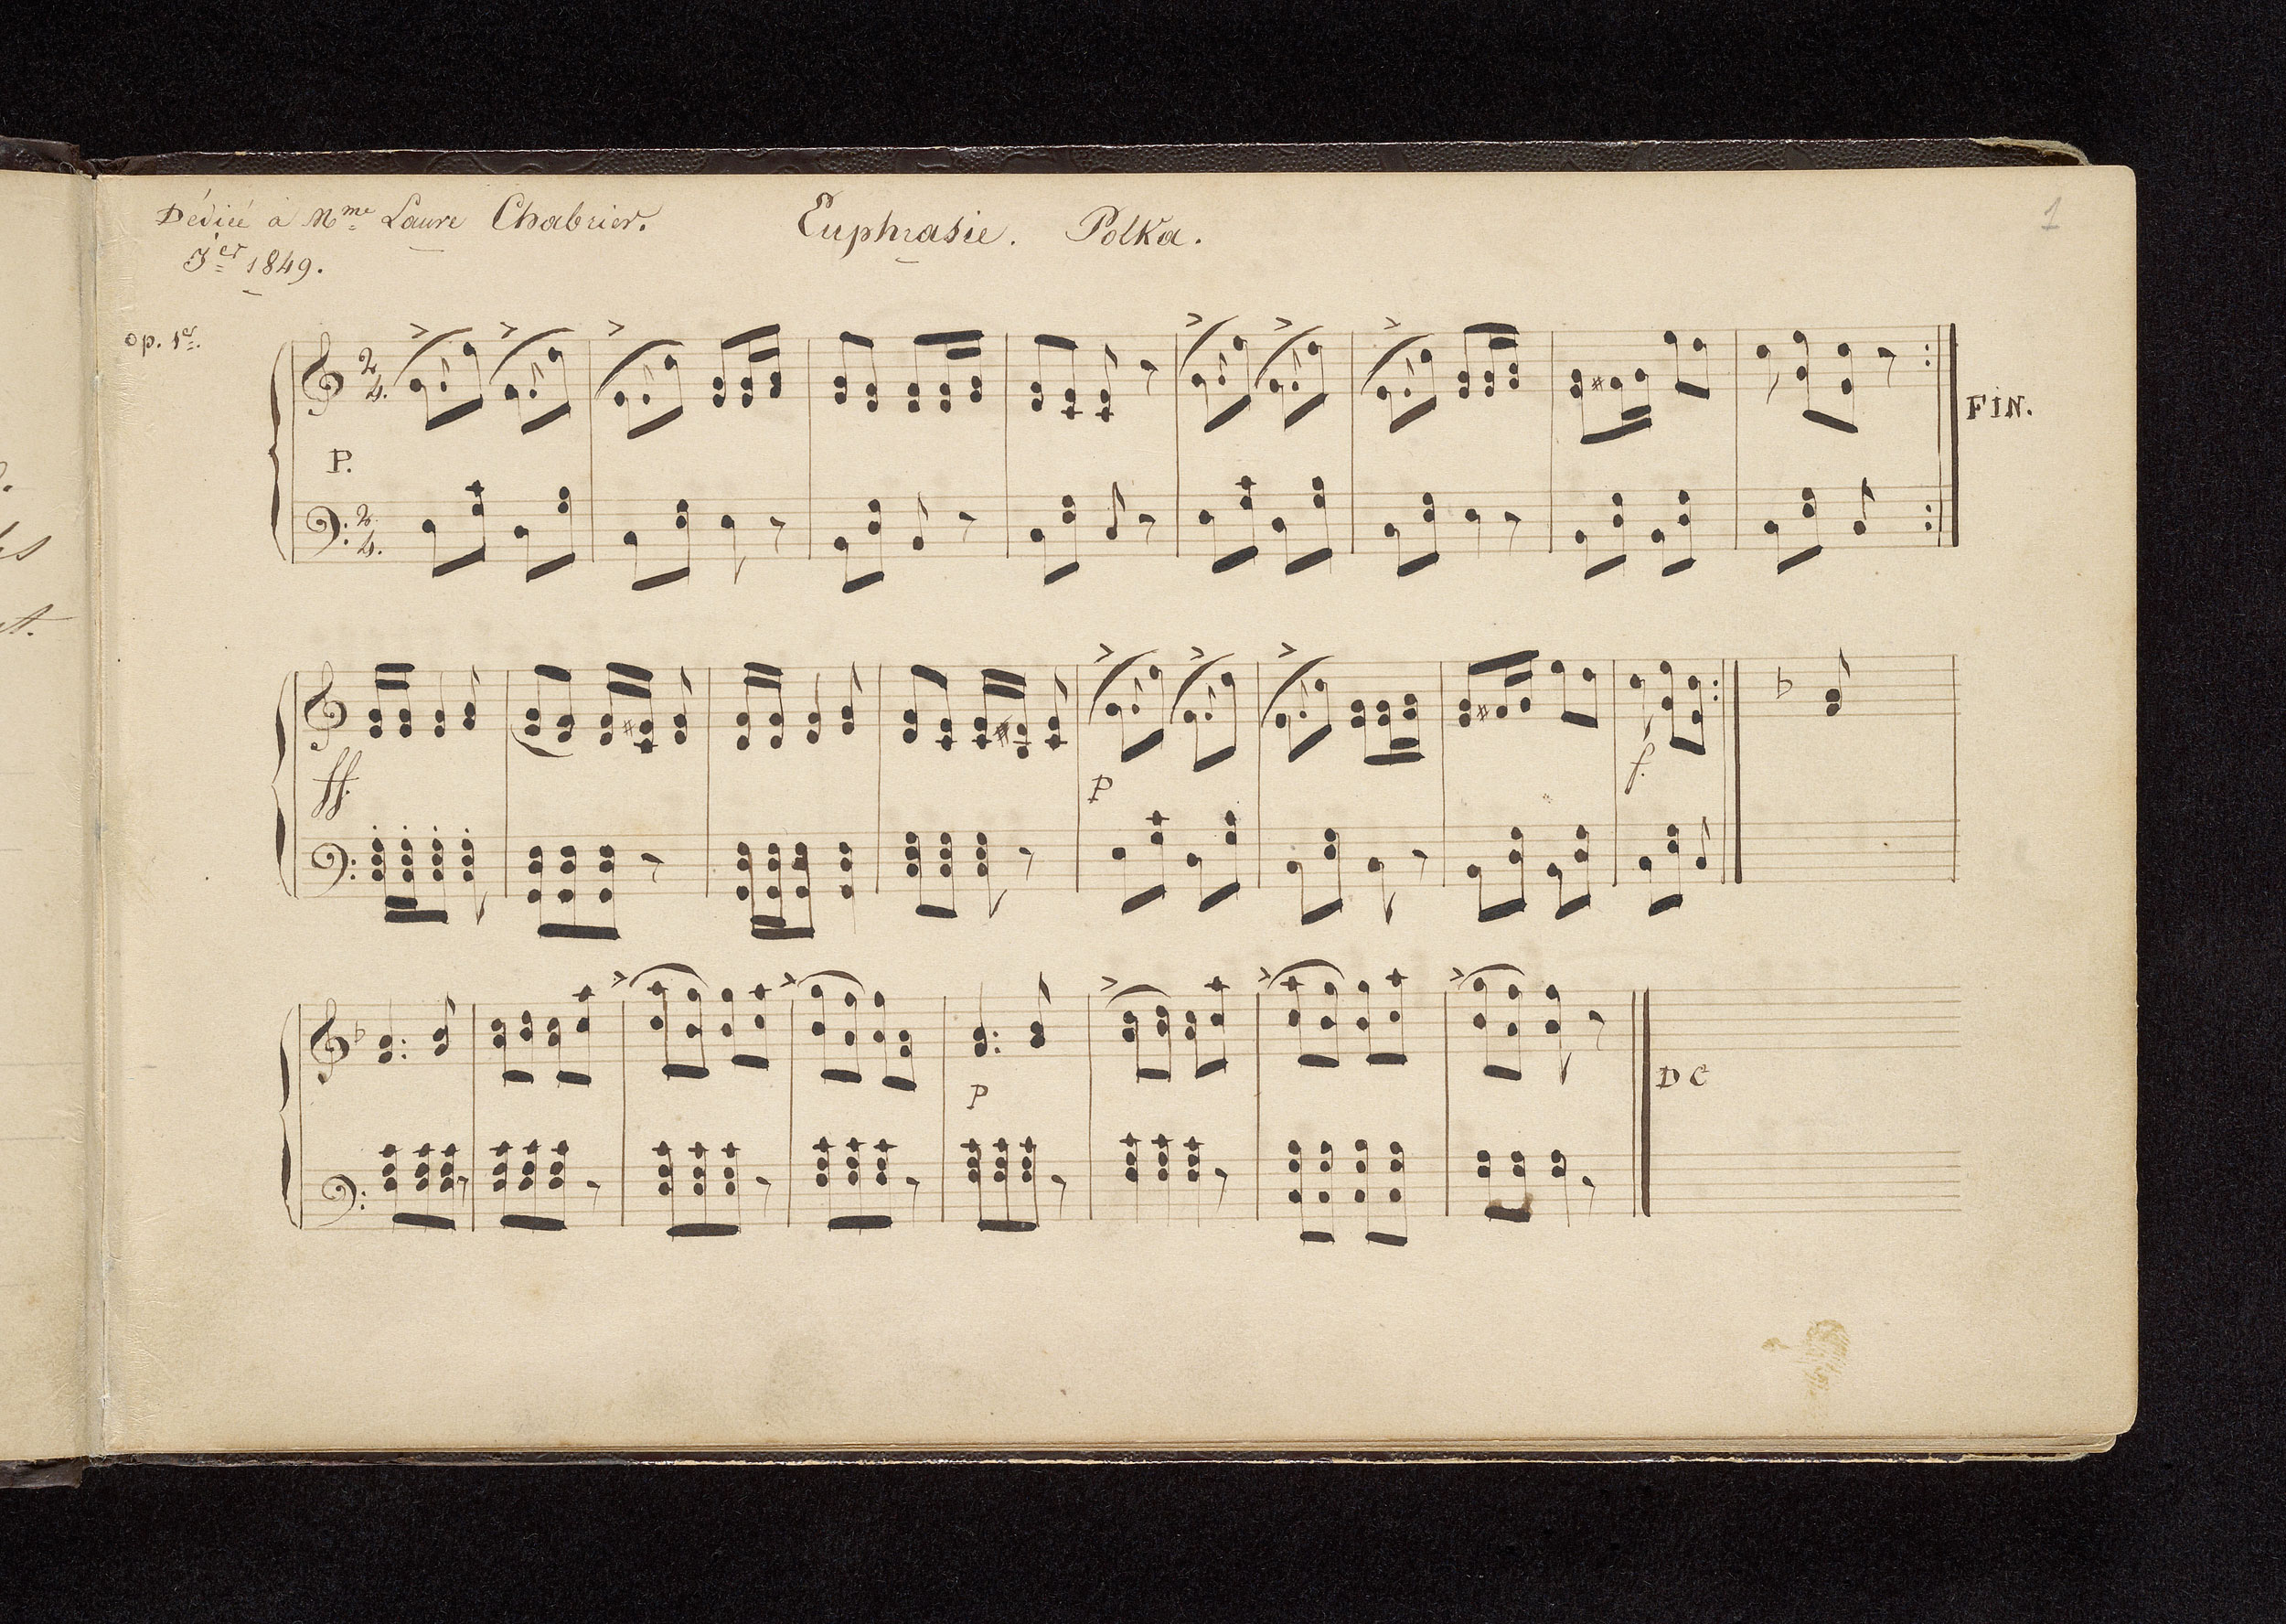 Dédié à Mme Laure Chabrier. Euphrasie. Polka. 1
Jer 1849.
op. 1er.
P.
FIN.
ff.
P
f.
P
D C